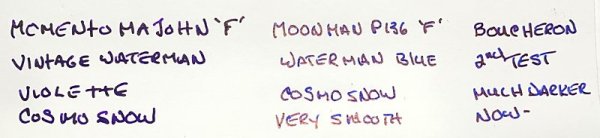 MOMENTO MAJOHN 'F'
VINTAGE WATERMAN
VIOLETTE
COSMO SNOW
MOONMAN P136 'F'
WATERMAN BLUE
COSMO SNOW
VERY SMOOTH
BOUCHERON
2nd TEST
MUCH DARKER
NOW-